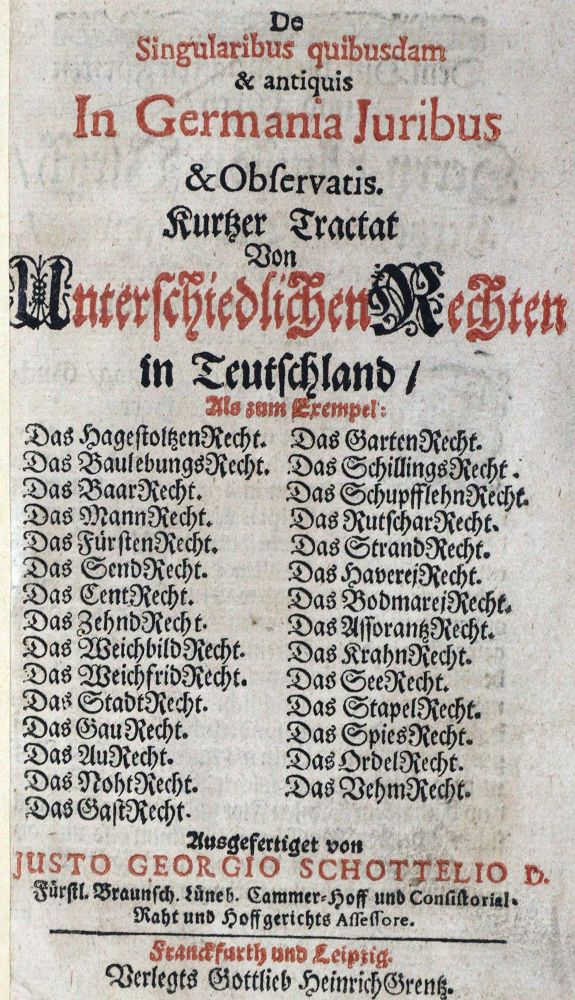 De
Singularibus quibusdam
& antiquis
In Germania Juribus
& Obſervatis.
Kurtzer Tractat
Von
Unterſchiedlichen Rechten
in Teutſchland /
Als zum Exempel:
Das HageſtoltzenRecht.
Das BaulebungsRecht.
Das BaarRecht.
Das MannRecht.
Das FürſtenRecht.
Das SendRecht.
Das CentRecht.
Das ZehndRecht.
Das WeichbildRecht.
Das WeichfridRecht.
Das StadtRecht.
Das GauRecht.
Das AuRecht.
Das NohtRecht.
Das GaſtRecht.
Das GartenRecht.
Das SchillingsRecht.
Das SchupfflehnRecht.
Das RutſcharRecht.
Das StrandRecht.
Das HaverejRecht.
Das BodmarejRecht.
Das AſſorantzRecht.
Das KrahnRecht.
Das SeeRecht.
Das StapelRecht.
Das SpiesRecht.
Das OrdelRecht.
Das VehmRecht.
Ausgefertiget von
JUSTO GEORGIO SCHOTTELIO D.
Fürſtl. Braunſch. Lüneb. Cammer-Hoff und Conſiſtorial-
Raht und Hoffgerichts Aſſeſſore.
Franckfurth und Leipzig.
Verlegts Gottlieb Heinrich Grentz.